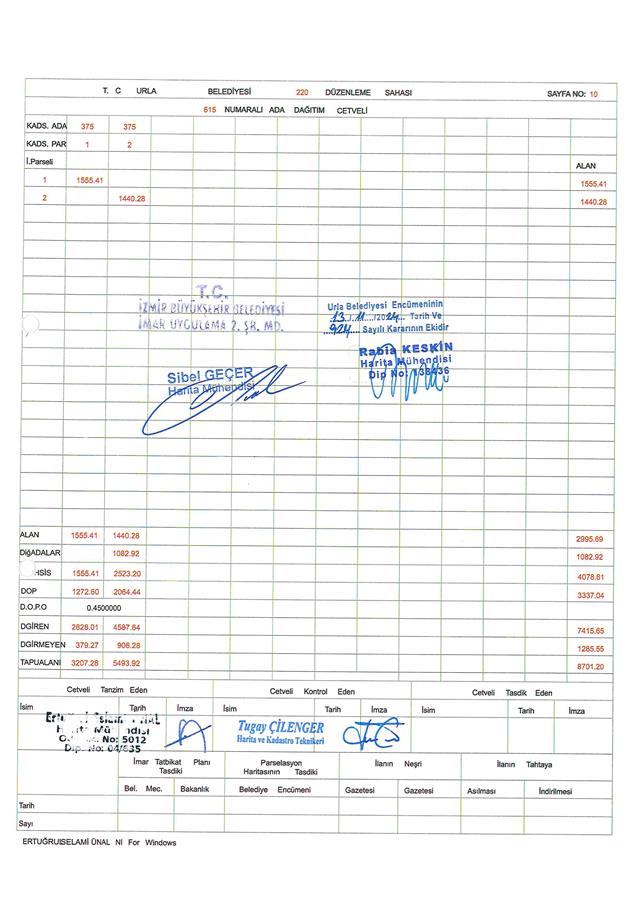 T. C URLA BELEDİYESİ 220 DÜZENLEME SAHASI SAYFA NO: 10
615 NUMARALI ADA DAĞITIM CETVELİ
KADS. ADA 375 375
KADS. PAR 1 2
İ.Parseli ALAN
1 1555.41 1555.41
2 1440.28 1440.28
T.C.
İZMİR BÜYÜKŞEHİR BELEDİYESİ
İMAR UYGULAMA 2. ŞB. MD.
Sibel GEÇER
Harita Mühendisi
Urla Belediyesi Encümeninin
13/11/2024 Tarih Ve
924 Sayılı Kararının Ekidir
Rabia KESKİN
Harita Mühendisi
Dip No: 138436
ALAN 1555.41 1440.28 2995.69
DiğADALAR 1082.92 1082.92
HSİS 1555.41 2523.20 4078.61
DOP 1272.60 2064.44 3337.04
D.O.P.O 0.4500000
DGİREN 2828.01 4587.64 7415.65
DGİRMEYEN 379.27 906.28 1285.55
TAPUALANI 3207.28 5493.92 8701.20
Cetveli Tanzim Eden Cetveli Kontrol Eden Cetveli Tasdik Eden
İsim Tarih İmza İsim Tarih İmza İsim Tarih İmza
No: 5012
Dip. No: 04/635
Tugay ÇİLENGER
Harita ve Kadastro Teknikeri
İmar Tatbikat Planı Tasdiki Parselasyon Haritasının Tasdiki İlanın Neşri İlanın Tahtaya
Bel. Mec. Bakanlık Belediye Encümeni Gazetesi Gazetesi Asılması İndirilmesi
Tarih
Sayı
ERTUĞRUlSELAMİ ÜNAL NI For Windows